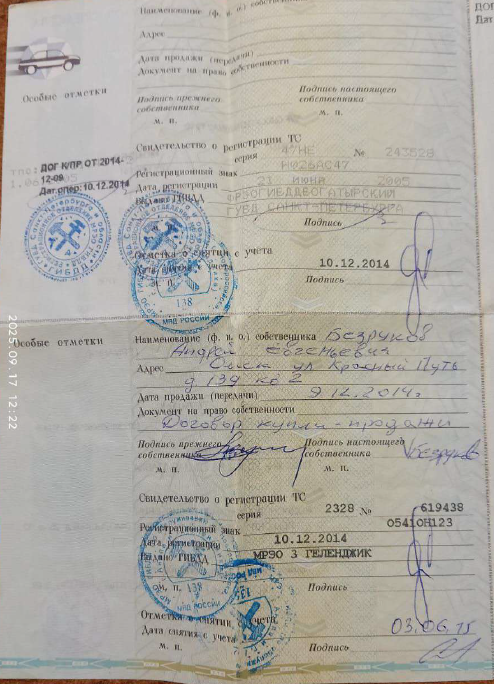 Наименование (ф. и. о.) собственника
Адрес
Дата продажи (передачи)
Документ на право собственности
Особые отметки
Подпись прежнего собственника
Подпись настоящего собственника
м. п.
м. п.
Свидетельство о регистрации ТС
серия 47НЕ № 243628
ДОГ К/ПР.ОТ:2014-
12-09.
Дат.опер: 10.12.2014
Регистрационный знак Н026АС47
Дата регистрации 23 ИЮНЯ 2005
Выдано ГИБДД
ГУВД САНКТ-ПЕТЕРБУРГА
Подпись
Отметка о снятии с учета
Дата снятия с учета 10.12.2014
м. п.
Подпись
138
МВД РОССИИ
2025.09.17 12:22
Особые отметки
Наименование (ф. и. о.) собственника Безруков
Андрей Евгеньевич
Адрес Омск ул Красный Путь
д 139 к 2
Дата продажи (передачи) 9.12.2014г
Документ на право собственности
Договор купли-продажи
Подпись прежнего собственника
Подпись настоящего собственника
м. п.
м. п.
Свидетельство о регистрации ТС
серия 2328 № 619438
Регистрационный знак О541ОН123
Дата регистрации 10.12.2014
Выдано ГИБДД МРЭО 3 ГЕЛЕНДЖИК
м. п.
Подпись
138
Отметка о снятии с учета
Дата снятия с учета 03.06.15
м. п.
Подпись